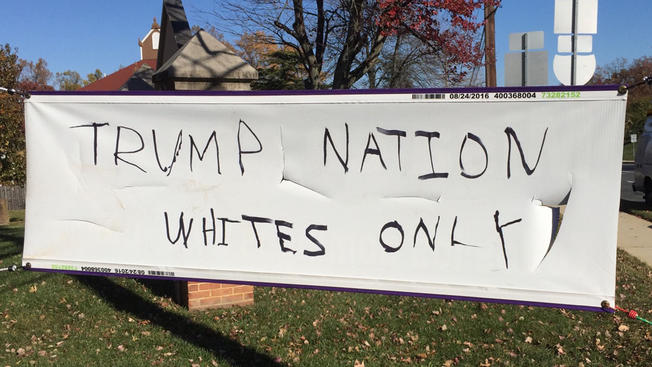 08/24/2016 400368004 73282152
TRUMP NATION
WHITES ONLY
73282152 400368004 08/24/2016